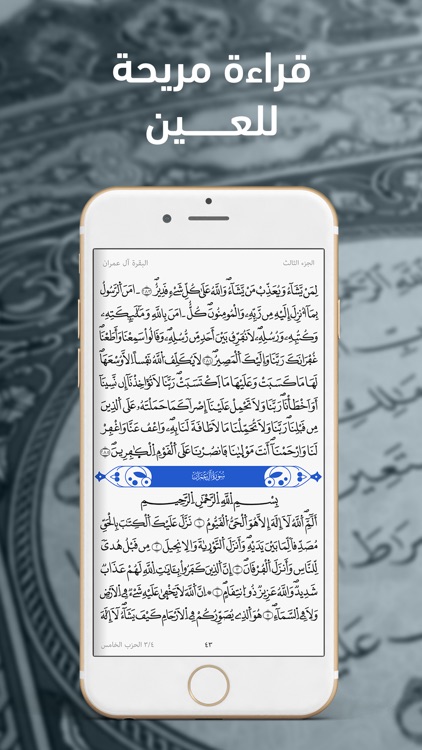 قراءة مريحة
للعـــــين
الجزء الثالث
البقرة آل عمران
لِمَنْ يَّشَآءُ وَيُعَذِّبُ مَنْ يَّشَآءُ وَاللَّهُ عَلَىٰ كُلِّ شَيْءٍ قَدِيرٌ ءَامَنَ اَلرَّسُولُ
بِمَآ أُنزِلَ إِلَيْهِ مِن رَّبِّهِۦ وَالْمُومِنُونَ كُلٌّ ءَامَنَ بِاللَّهِ وَمَلَٰٓئِكَتِهِۦ
وَكُتُبِهِۦ وَرُسُلِهِۦ لَا نُفَرِّقُ بَيْنَ أَحَدٍ مِّن رُّسُلِهِۦ وَقَالُوا سَمِعْنَا وَأَطَعْنَا
غُفْرَانَكَ رَبَّنَا وَإِلَيْكَ اَلْمَصِيرُ لَا يُكَلِّفُ اُللَّهُ نَفْساً اِلَّا وُسْعَهَا
لَهَا مَا كَسَبَتْ وَعَلَيْهَا مَا اَكْتَسَبَتْ رَبَّنَا لَا تُوَاخِذْنَآ إِن نَّسِينَآ
أَوَ اَخْطَأْنَا رَبَّنَا وَلَا تَحْمِلْ عَلَيْنَآ إِصْراً كَمَا حَمَلْتَهُۥ عَلَى اَلذِينَ
مِن قَبْلِنَا رَبَّنَا وَلَا تُحَمِّلْنَا مَا لَا طَاقَةَ لَنَا بِهِۦ وَاعْفُ عَنَّا وَاغْفِرْ
لَنَا وَارْحَمْنَآ أَنتَ مَوْلَىٰنَا فَانصُرْنَا عَلَى اَلْقَوْمِ اِلْكَٰفِرِينَ
سُورَةُ آلِ عِمْرَانَ
بِسْمِ اِللَّهِ اِلرَّحْمَٰنِ اِلرَّحِيمِ
أَلَٓمِّٓ اَللَّهُ لَآ إِلَٰهَ إِلَّا هُوَ اَلْحَيُّ اُلْقَيُّومُ نَزَّلَ عَلَيْكَ اَلْكِتَٰبَ بِالْحَقِّ
مُصَدِّقاً لِّمَا بَيْنَ يَدَيْهِ وَأَنزَلَ اَلتَّوْرَىٰةَ وَالِانجِيلَ مِن قَبْلُ هُدىً
لِّلنَّاسِ وَأَنزَلَ اَلْفُرْقَانَ إِنَّ اَلذِينَ كَفَرُوا بِـَٔايَٰتِ اِللَّهِ لَهُمْ عَذَابٌ
شَدِيدٌ وَاللَّهُ عَزِيزٌ ذُو اُنتِقَامٍ إِنَّ اَللَّهَ لَا يَخْفَىٰ عَلَيْهِ شَيْءٌ فِي اِلَارْضِ
وَلَا فِي اِلسَّمَآءِ هُوَ اَلذِي يُصَوِّرُكُمْ فِي اِلَارْحَامِ كَيْفَ يَشَآءُ لَآ إِلَٰهَ
٤٣
٣/٤ الحزب الخامس